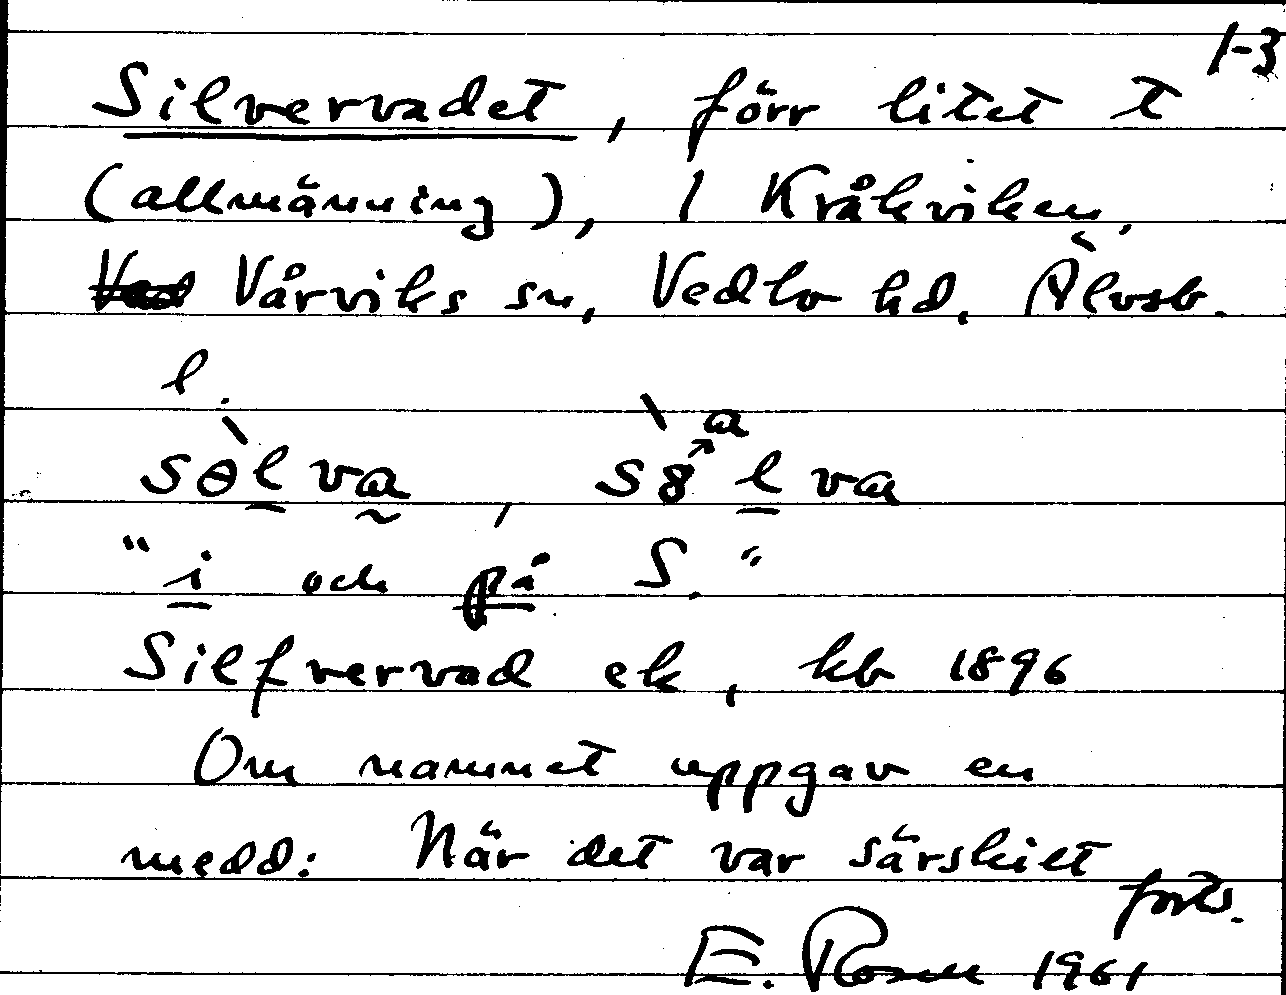 1-3
Silvervadet, förr litet t
(allmänning), 1 Kråkviken,
Vårviks sn, Vedbo hd, Älvsb.
l.
sɵ̀lva, sɞ̀lva
a
"i och på S."
Silfvervad ek, kb 1896
Om namnet uppgav en
medd: När det var särskilt
forts.
E. Rosell 1961